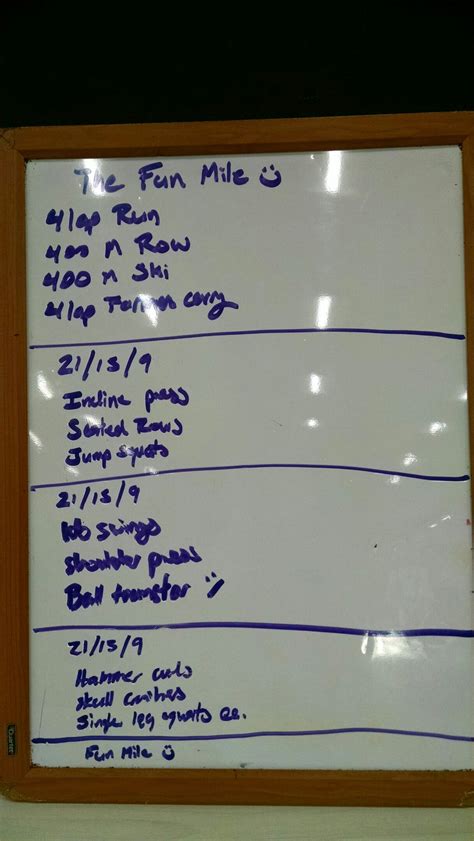 The Fun Mile
4 lap Run
400 M Row
400 M Ski
4 lap Farmers carry
21/15/9
Incline press
Seated Rows
Jump squats
21/15/9
kb swings
shoulder press
Ball transfer
21/15/9
Hammer curls
skull crushes
Single leg squats ea.
Fun Mile
Quartet